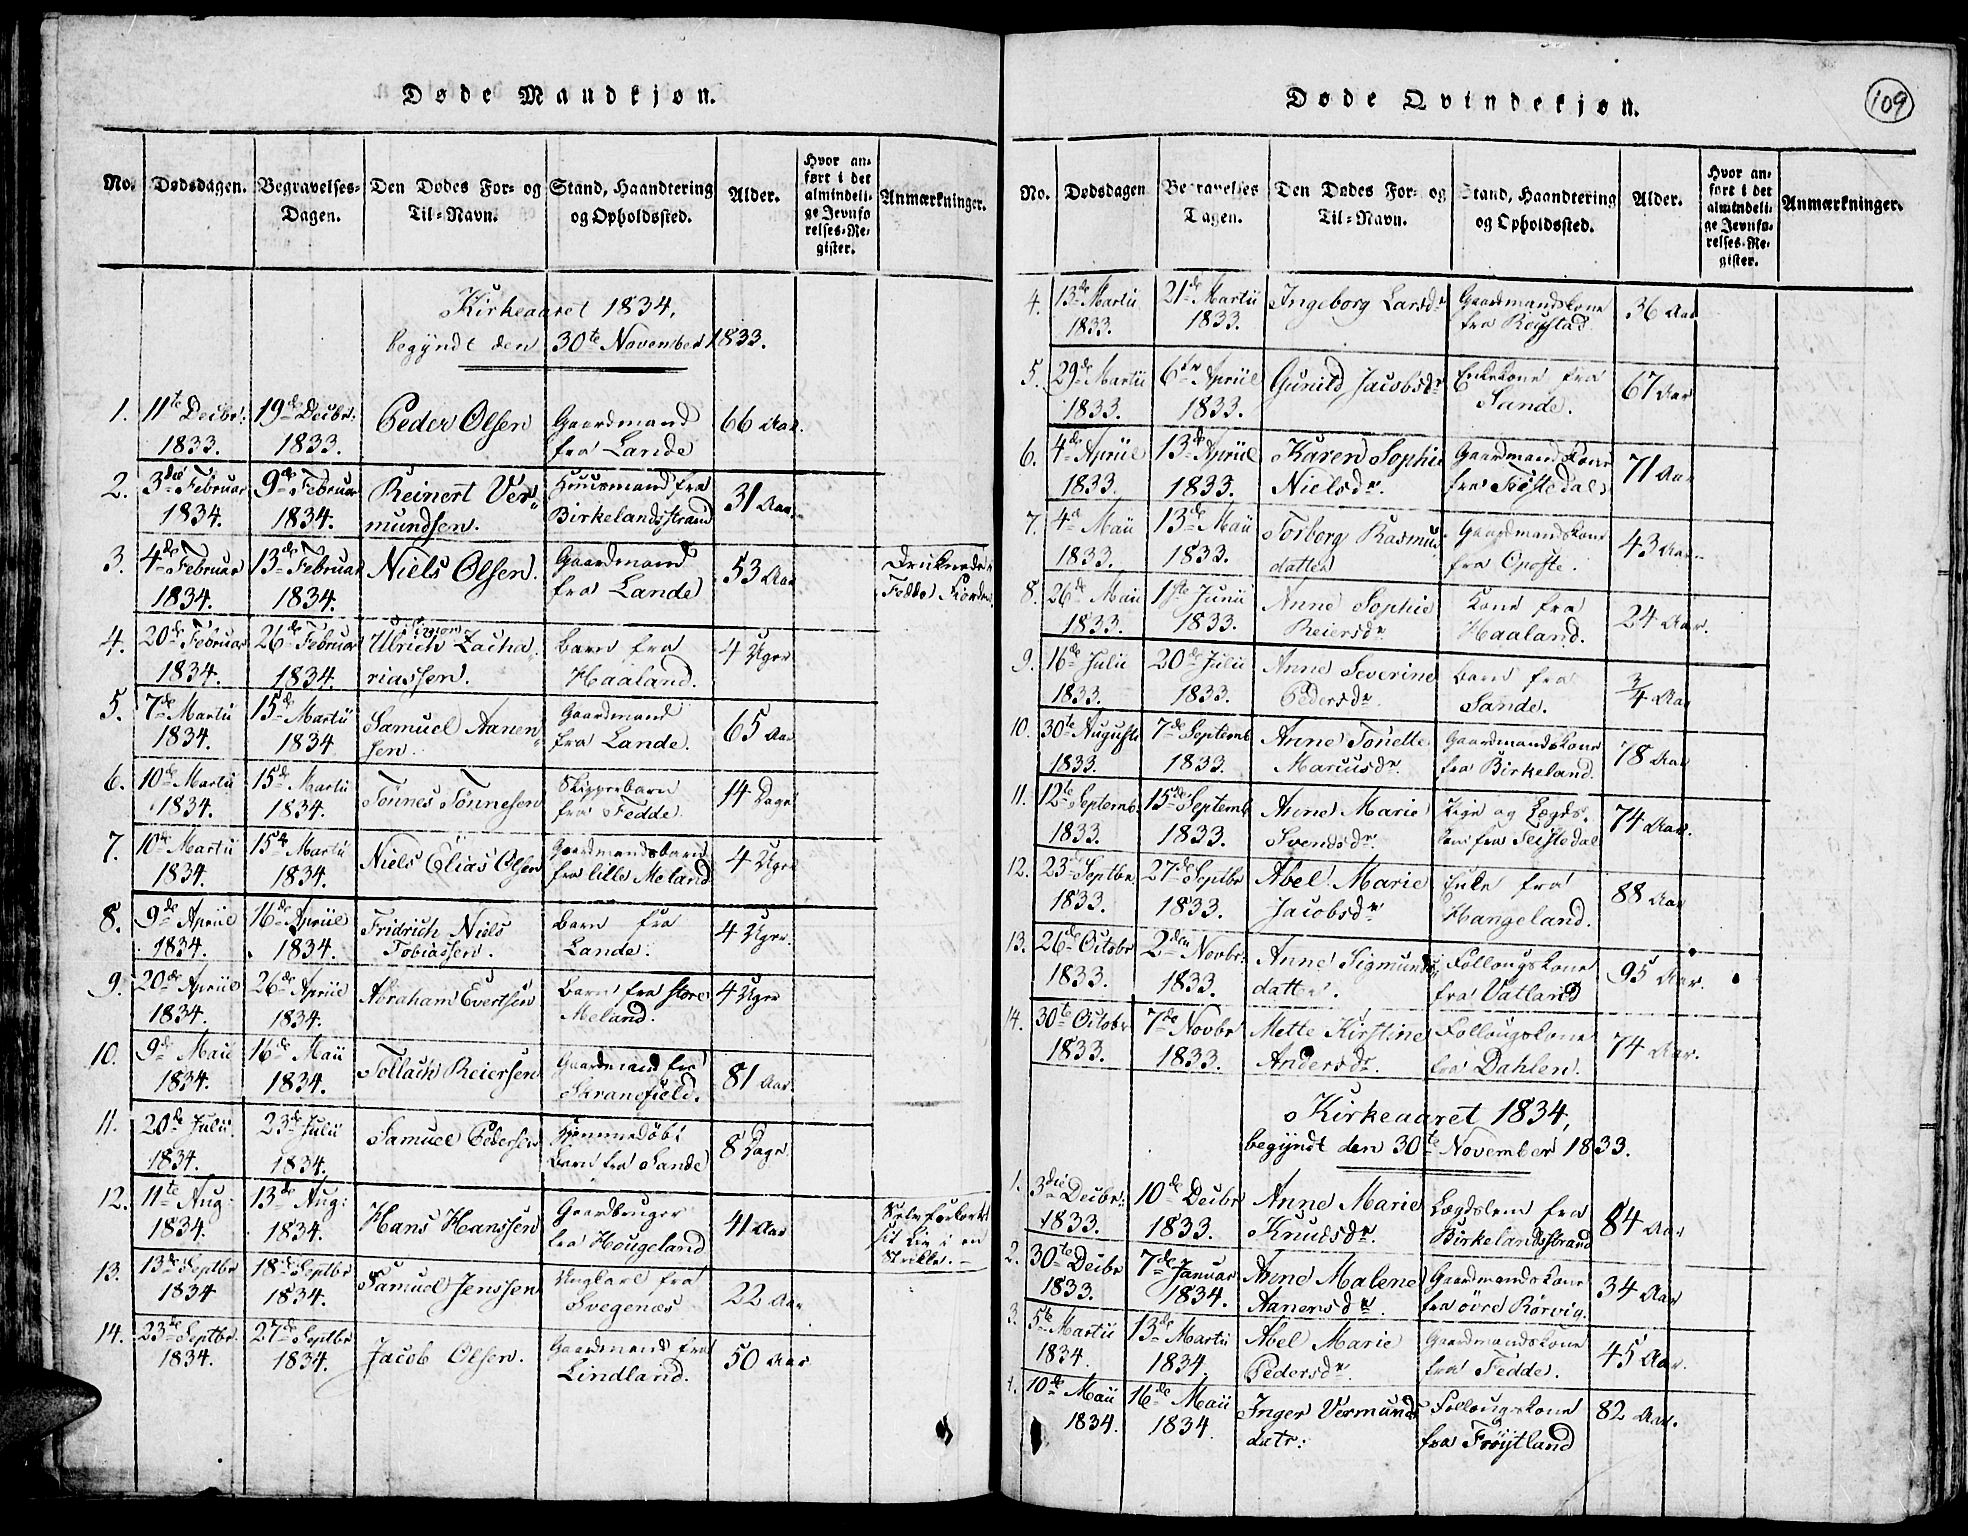 Døde Mandkjøn.
No. Dødsdagen. Begravelses-Dagen. Den Dødes For- og Til-Navn. Stand, Haandtering og Opholdssted. Alder. Hvor anført i det almindelige Jevnførelses-Register. Anmærkninger.
Kirkeaaret 1834,
begyndt den 30te November 1833.
1. 11te Decbr: 19de Decbr: Peder Olsen Gaardmand 66 Aar.
1833. 1833. fra Lande
2. 3die Februar 9de Februar Reinert Ver- Huusmand fra 31 Aar.
1834. 1834. mundsen. Birkelandsstrand
3. 4de Februar 13de Februar Niels Olsen. Gaardmand 53 Aar Druknede i
1834. 1834. fra Lande Fedde Fiorden
4. 20de Februar 26de Februar Ulrich Zacha- Barn fra 4 Uger
1834. 1834. riassen. Haaland.
5. 7de Martii 15de Martii Samuel Aanen- Gaardmand 65 Aar
1834. 1834 sen. fra Lande.
6. 10de Martii 15de Martii Tønnes Tønnesen Skipperbarn 14 Dage
1834. 1834. fra Fedde.
7. 10de Martii 15de Martii Niels Elias Olsen Gaardmandsbarn 4 Uger
1834. 1834. fra lille Meland
8. 9de Apriil 16de Apriil Fridrich Niels Barn fra 4 Uger.
1834. 1834. Tobiassen. Lande.
9. 20de Apriil 26de Apriil Abraham Evertsen Barn fra store 4 Uger
1834. 1834. Meland.
10. 9de Maii 16de Maii Tollach Reiersen Gaardmand fra 81 Aar.
1834. 1834. Skransfield.
11. 20de Julii 23de Julii Samuel Pedersen Hjemmedøbt 8 Dage.
1834. 1834. Barn fra Sande
12. 11te Aug: 13de Aug: Hans Hanssen Gaardbruger 41 Aar Selv forkortet
1834. 1834. fra Hougeland sit Liv i en
Strikke.
13. 13de Septbr 18de Septbr Samuel Jenssen Ungkarl fra 22 Aar
1834 1834. Svegenæs
14. 23de Septbr. 27de Septbr Jacob Olsen. Gaardmand fra 50 Aar
1834. 1834. Lindland.
Døde Qvindekjøn.
109
No. Dødsdagen Begravelses Dagen. Den Dødes For- og Til-Navn. Stand, Haandtering og Opholdssted. Alder. Hvor anført i det almindelige Jevnførelses-Register. Anmærkninger.
4. 13de Martii 21de Martii Ingeborg Larsdr Gaardmandskone 36 Aar
1833. 1833. fra
5. 29de Martii 6te Apriil Gunild Jacobsdr Enkekone fra 67 Aar
1833. 1833. Sande.
6. 4de Apriil 13de Apriil Karen Sophie Gaardmandskone 71 Aar
1833. 1833. Nielsdr. fra
7. 4de Maii 13de Maii Torborg Rasmus- Gaardmandskone 43 Aar
1833. 1833. datter fra Opofte.
8. 26de Maii 1ste Junii Anne Sophie Kone fra 24 Aar.
1833. 1833. Reiersdr Haaland.
9. 16de Julii 20de Julii Anne Severine Barn fra 3/4 Aar
1833. 1833. Pedersdr. Sande.
10. 30te Augusti 7de Septemb Anne Tonette Gaardmandskone 78 Aar
1833. 1833. Marcusdr. fra Birkeland.
11. 12te Septemb: 15de Septemb Anne Marie Pige og Lægds- 74 Aar.
1833. 1833. Svendsdr. lem fra
12. 23de Septbr 27de Septbr Abel Marie Enke fra 88 Aar
1833. 1833. Jacobsdr Hangeland.
13. 26de Octobr 2den Novbr. Anne Sigmunds- Follougskone 95 Aar.
1833. 1833. datter. fra Vatland
14. 30te Octobr 7de Novbr Mette Kirstine Follougskone 74 Aar.
1833. 1833. Andersdr. fra Dahlen.
Kirkeaaret 1834,
begyndt den 30te November 1833.
1. 3die Decbr: 10de Decbr Anne Marie Lægdslem fra 84 Aar
1833. 1833. Knudsdr. Birkelandsstrand
2. 30te Decbr 7de Januar Anne Malene Gaardmandskone 34 Aar
1833. 1834. Aanensdr. fra øvre Rørvig.
3. 5te Martii 13de Martii Abel Marie Gaardmandskone 45 Aar.
1834. 1834. Pedersdr. fra Fedde.
4. 10de Maii 16de Maii Inger Vermunds Follougskone 82 Aar.
1834. 1834. datr: fra Frøytland